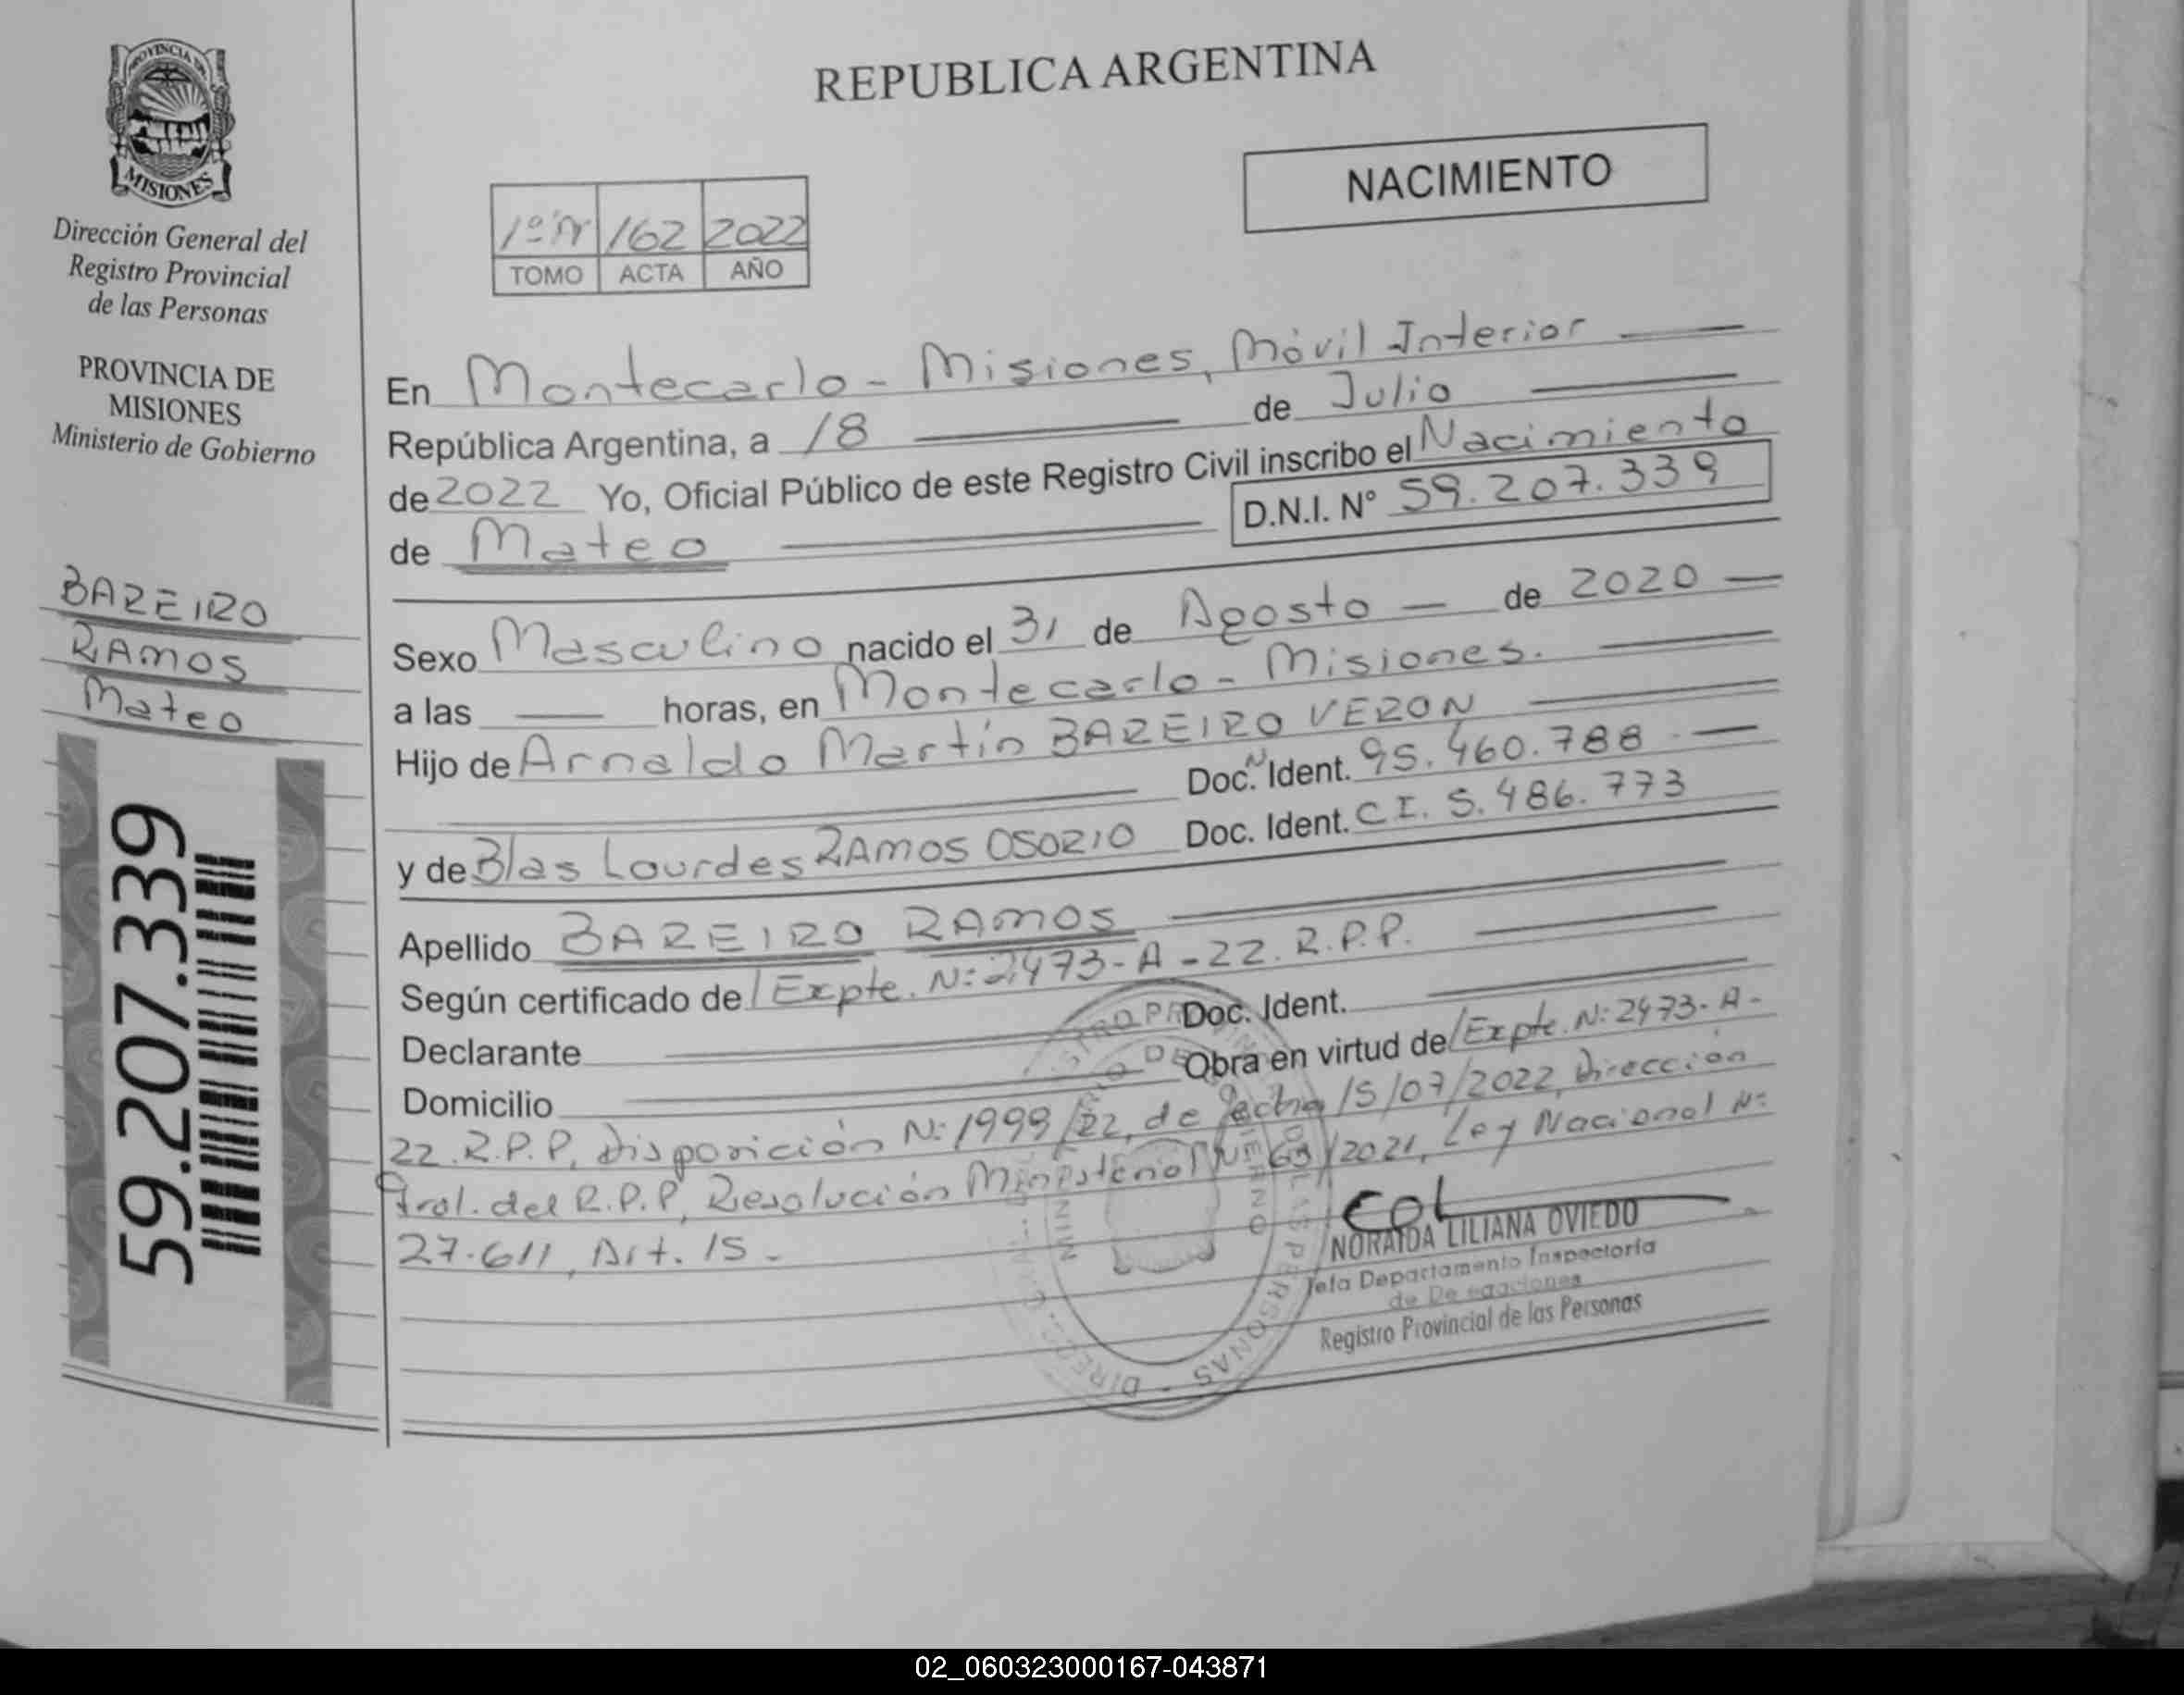 PROVINCIA DE
MISIONES
Dirección General del
Registro Provincial
de las Personas
PROVINCIA DE
MISIONES
Ministerio de Gobierno
BAREIRO
RAMOS
Mateo
59.207.339
REPUBLICA ARGENTINA
NACIMIENTO
162 2022
TOMO ACTA AÑO
En Montecarlo - Misiones, Móvil Interior
República Argentina, a 18 de Julio
de 2022 Yo, Oficial Público de este Registro Civil inscribo el Nacimiento
de Mateo D.N.I. N° 59.207.339
Sexo Masculino nacido el 31 de Agosto de 2020
a las horas, en Montecarlo - Misiones.
Hijo de Arnaldo Martín BAREIRO VERON
Doc. Ident. 95.460.788
y de Blas Lourdes RAMOS OSORIO Doc. Ident. C I. 5.486.773
Apellido BAREIRO RAMOS
Según certificado de Expte. N: 2473-A-22. R.P.P.
Declarante Doc. Ident.
Domicilio Obra en virtud de Expte. N: 2473-A-
22. R.P.P, Disposición N: 1999/22, de fecha 15/07/2022, Dirección
Gral. del R.P.P, Resolución Ministerial N: 63/2021, Ley Nacional N:
27.611, Art. 15.
NORAIDA LILIANA OVIEDO
Jefa Departamento Inspectoría
de Delegaciones
Registro Provincial de las Personas
02_060323000167-043871